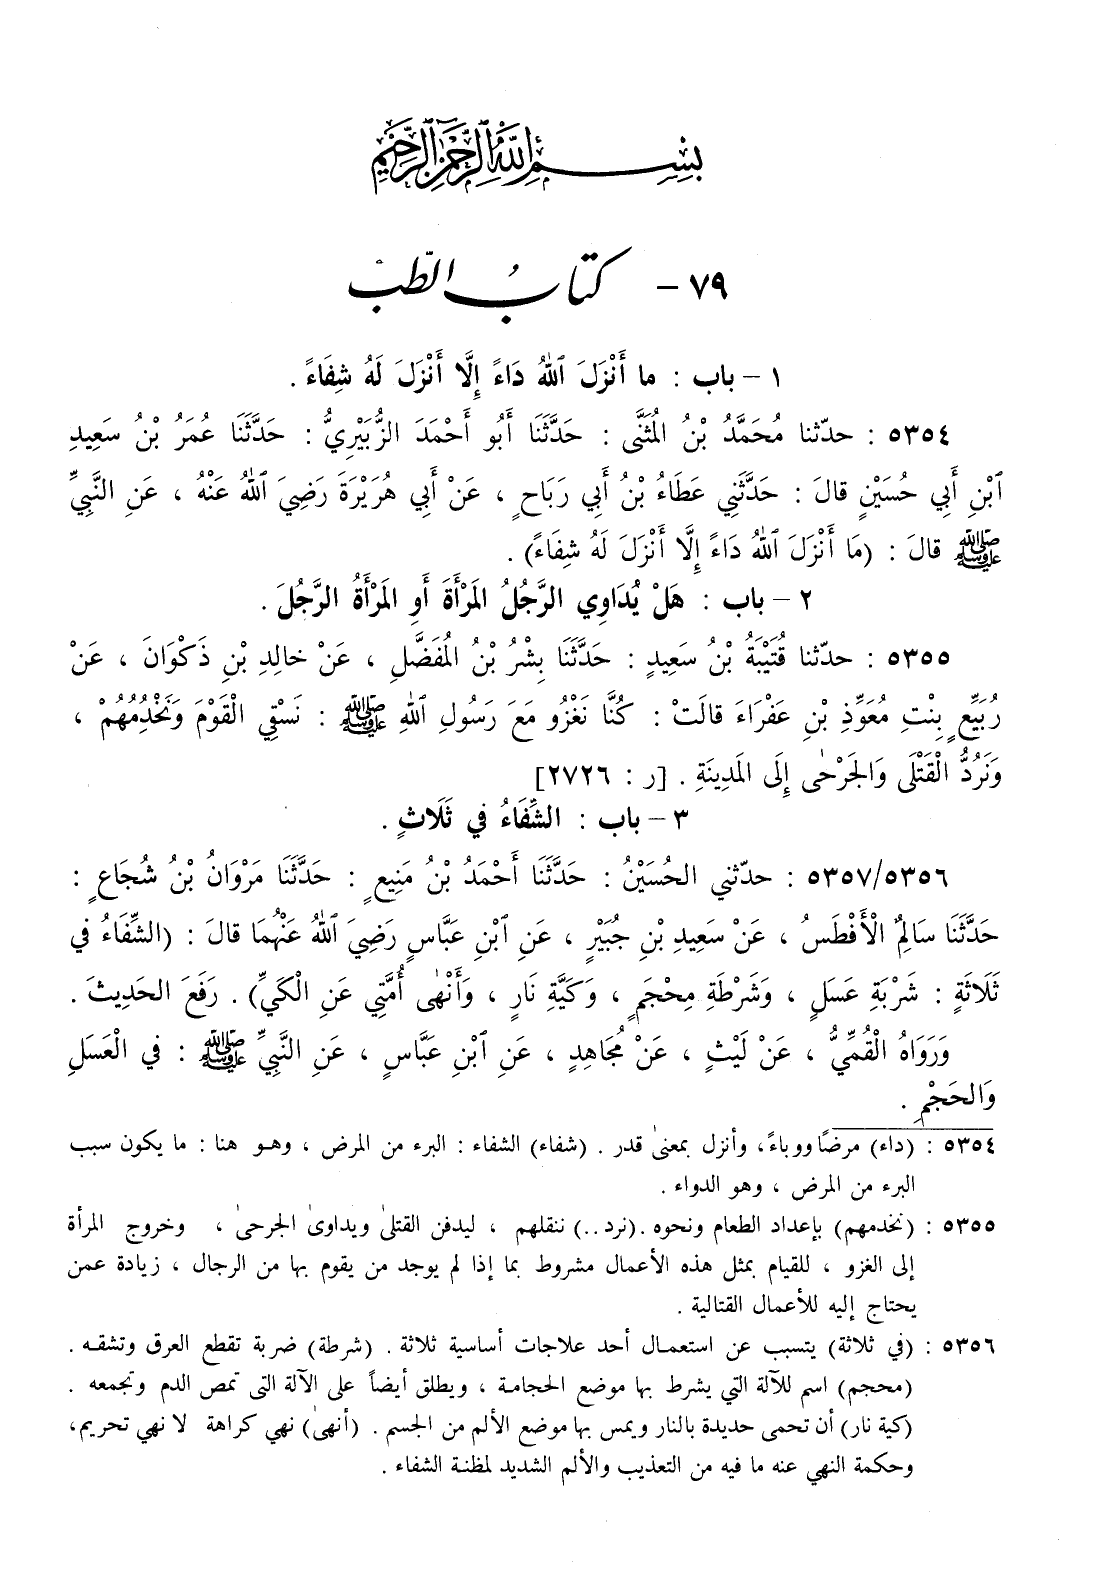 بِسْمِ اللَّهِ الرَّحْمَٰنِ الرَّحِيمِ
٧٩ – كتابُ الطّب
١ – باب : ما أَنْزَلَ ٱللهُ دَاءً إِلَّا أَنْزَلَ لَهُ شِفَاءً .
٥٣٥٤ : حدّثنا مُحَمَّدُ بْنُ المُثَنَّى : حَدَّثَنَا أَبُو أَحْمَدَ الزُّبَيْرِيُّ : حَدَّثَنَا عُمَرُ بْنُ سَعِيدِ
ٱبْنِ أَبِي حُسَيْنٍ قالَ : حَدَّثَنِي عَطَاءُ بْنُ أَبِي رَبَاحٍ ، عَنْ أَبِي هُرَيْرَةَ رَضِيَ ٱللهُ عَنْهُ ، عَنِ النَّبِيِّ
ﷺ قالَ : (مَا أَنْزَلَ ٱللهُ دَاءً إِلَّا أَنْزَلَ لَهُ شِفَاءً) .
٢ – باب : هَلْ يُدَاوِي الرَّجُلُ المَرْأَةَ أَوِ المَرْأَةُ الرَّجُلَ .
٥٣٥٥ : حدّثنا قُتَيْبَةُ بْنُ سَعِيدٍ : حَدَّثَنَا بِشْرُ بْنُ المُفَضَّلِ ، عَنْ خالِدِ بْنِ ذَكْوَانَ ، عَنْ
رُبَيِّعٍ بِنْتِ مُعَوِّذِ بْنِ عَفْرَاءَ قالَتْ : كُنَّا نَغْزُو مَعَ رَسُولِ ٱللهِ ﷺ : نَسْقِي الْقَوْمَ وَنَخْدُمُهُمْ ،
وَنَرُدُّ الْقَتْلَى وَالجَرْحٰى إِلَى المَدِينَةِ . [ر : ٢٧٢٦]
٣ – باب : الشِّفَاءُ فِي ثَلَاثٍ .
٥٣٥٧/٥٣٥٦ : حدّثني الحُسَيْنُ : حَدَّثَنَا أَحْمَدُ بْنُ مَنِيعٍ : حَدَّثَنَا مَرْوَانُ بْنُ شُجَاعٍ :
حَدَّثَنَا سَالِمٌ الْأَفْطَسُ ، عَنْ سَعِيدِ بْنِ جُبَيْرٍ ، عَنِ ٱبْنِ عَبَّاسٍ رَضِيَ ٱللهُ عَنْهُمَا قالَ : (الشِّفَاءُ فِي
ثَلَاثَةٍ : شَرْبَةِ عَسَلٍ ، وَشَرْطَةِ مِحْجَمٍ ، وَكَيَّةِ نَارٍ ، وَأَنْهٰى أُمَّتِي عَنِ الْكَيِّ) . رَفَعَ الحَدِيثَ .
وَرَوَاهُ الْقُمِّيُّ ، عَنْ لَيْثٍ ، عَنْ مُجَاهِدٍ ، عَنِ ٱبْنِ عَبَّاسٍ ، عَنِ النَّبِيِّ ﷺ : فِي الْعَسَلِ
وَالحَجْمِ .
٥٣٥٤ : (داء) مرضًا ووباءً، وأنزل بمعنىٰ قدر . (شفاء) الشفاء : البرء من المرض ، وهو هنا : ما يكون سبب
البرء من المرض ، وهو الدواء .
٥٣٥٥ : (نخدمهم) بإعداد الطعام ونحوه . (نرد . .) ننقلهم ، ليدفن القتلىٰ ويداوىٰ الجرحىٰ ، وخروج المرأة
إلى الغزو ، للقيام بمثل هذه الأعمال مشروط بما إذا لم يوجد من يقوم بها من الرجال ، زيادة عمن
يحتاج إليه للأعمال القتالية .
٥٣٥٦ : (في ثلاثة) يتسبب عن استعمال أحد علاجات أساسية ثلاثة . (شرطة) ضربة تقطع العرق وتشقه .
(محجم) اسم للآلة التي يشرط بها موضع الحجامة ، ويطلق أيضاً على الآلة التى تمص الدم وتجمعه .
(كية نار) أن تحمى حديدة بالنار ويمس بها موضع الألم من الجسم . (أنهىٰ) نهي كراهة لا نهي تحريم،
وحكمة النهي عنه ما فيه من التعذيب والألم الشديد لمظنة الشفاء .